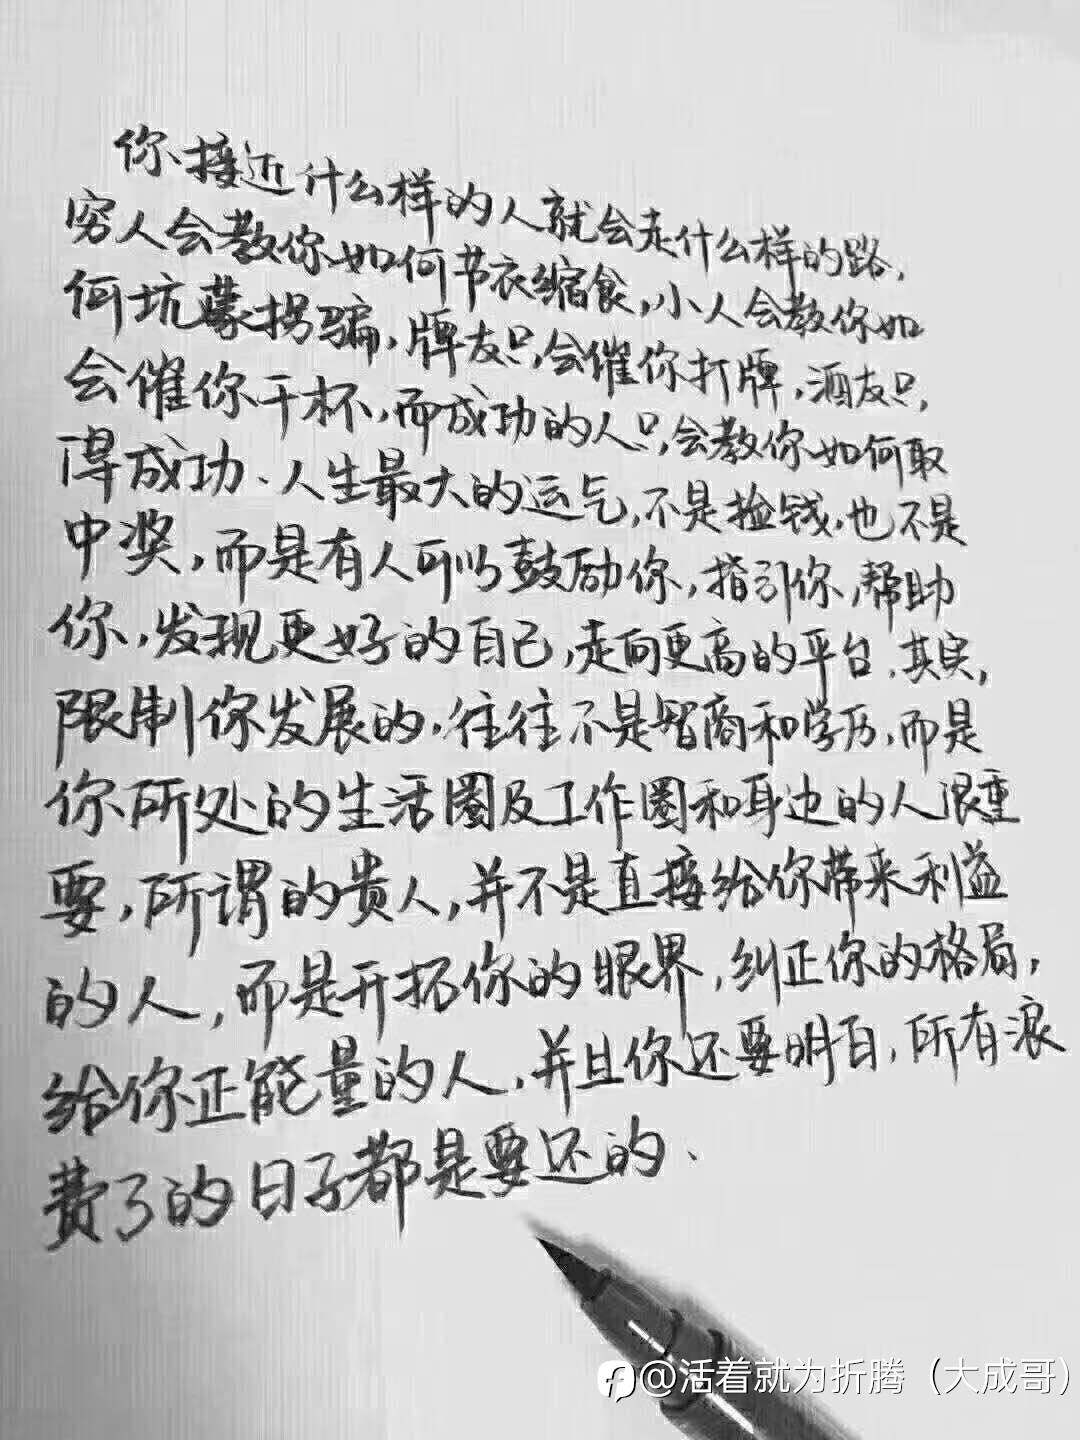 你接近什么样的人就会走什么样的路,
穷人会教你如何节衣缩食,小人会教你如
何坑蒙拐骗,牌友只会催你打牌,酒友只
会催你干杯,而成功的人只会教你如何取
得成功、人生最大的运气,不是捡钱,也不是
中奖,而是有人可以鼓励你,指引你,帮助
你,发现更好的自己,走向更高的平台.其实,
限制你发展的,往往不是智商和学历,而是
你所处的生活圈及工作圈和身边的人很重
要,所谓的贵人,并不是直接给你带来利益
的人,而是开拓你的眼界,纠正你的格局,
给你正能量的人,并且你还要明白,所有浪
费了的日子都是要还的、
@活着就为折腾（大成哥）